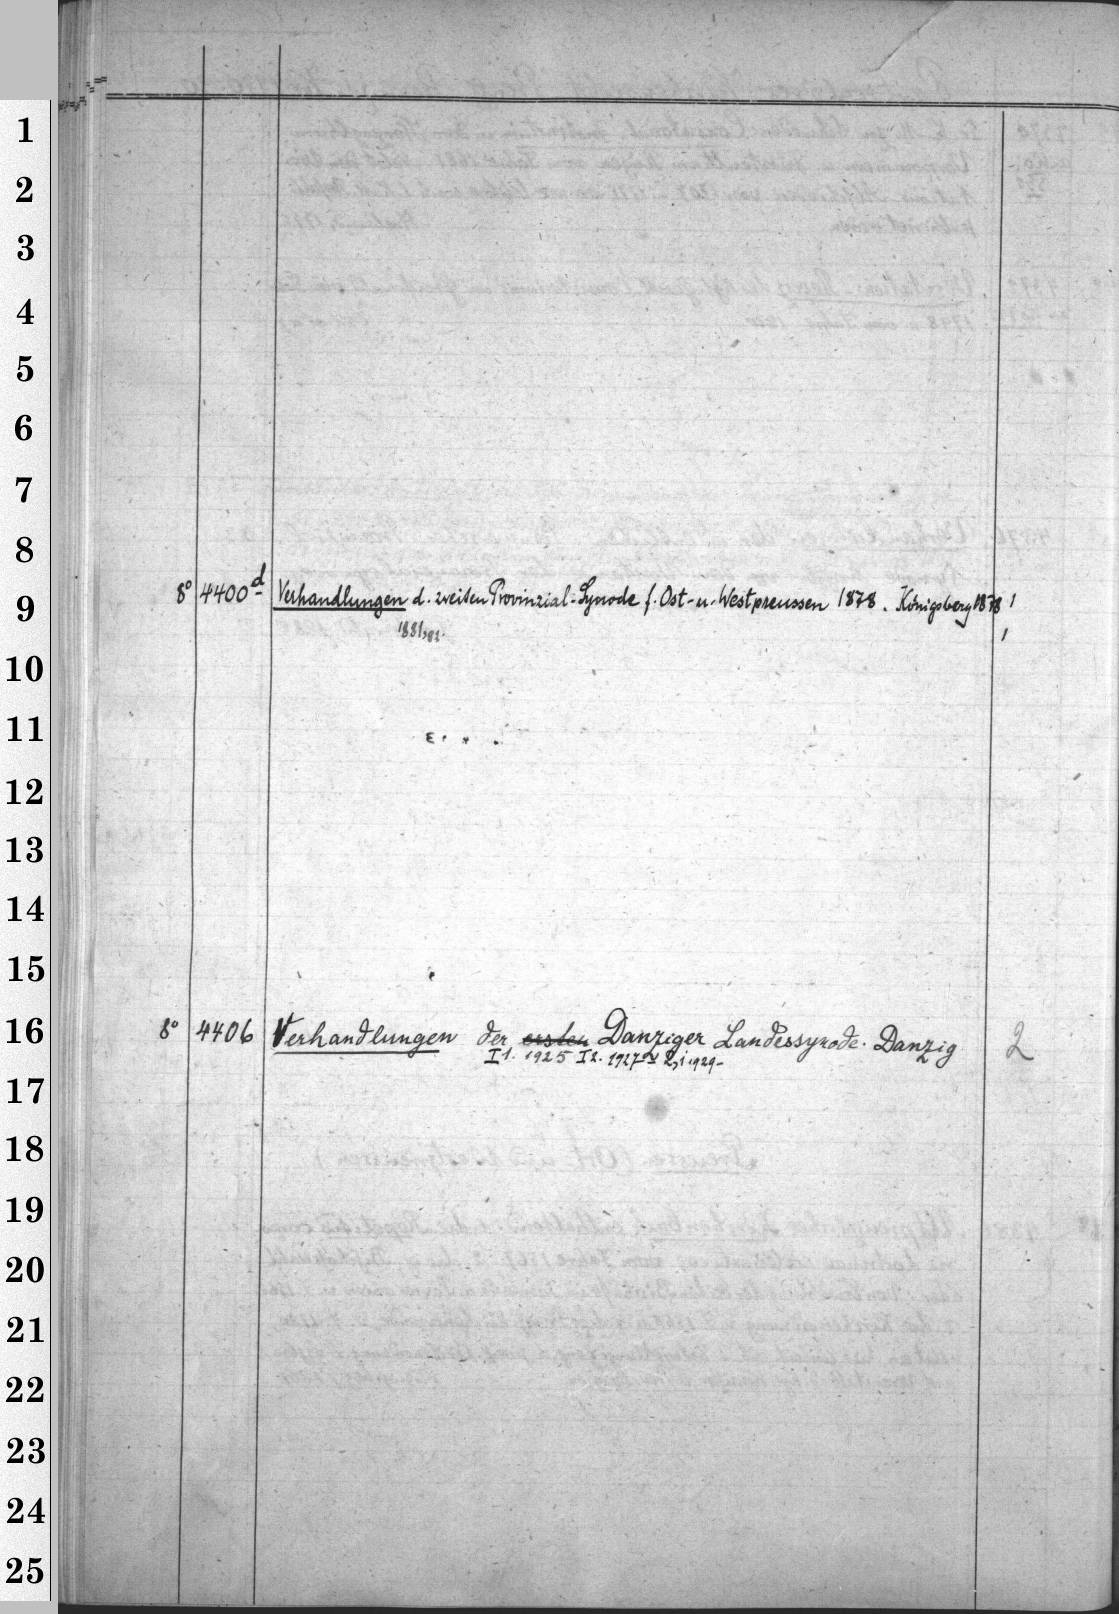 1
2
3
4
5
6
7
8
8° 4400 d Verhandlungen d. zweiten Provinzial-Synode f. Ost- u. Westpreussen 1878. Königsberg 1878 1
9
1881,
10
11
12
13
14
15
16
8° 4406 Verhandlungen der ersten Danziger Landessynode. Danzig 2
I 1. 1925 I 2. 1927 1929-
17
18
19
20
21
22
23
24
25